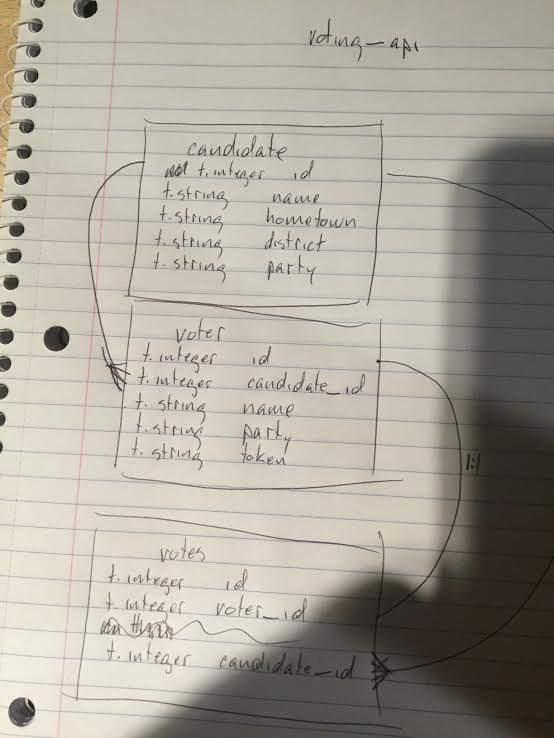 voting_api
candidate
t.integer id
t.string name
t.string hometown
t.string district
t.string party
voter
t.integer id
t.integer candidate_id
t. string name
t. string party
t. string token
1:1
votes
t.integer id
t. integer voter_id
t. integer candidate_id